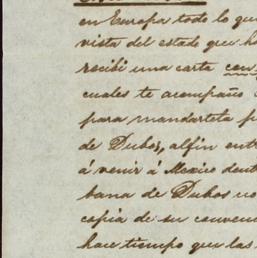 en Europa todo lo que
vista del estado que ha
recibi una carta con
cuales te acompaño
para mandartela p
de Dubos, alfin entr
á venir á Mexico dent
bana de Dubos no
copia de su conven
hace tiempo que las